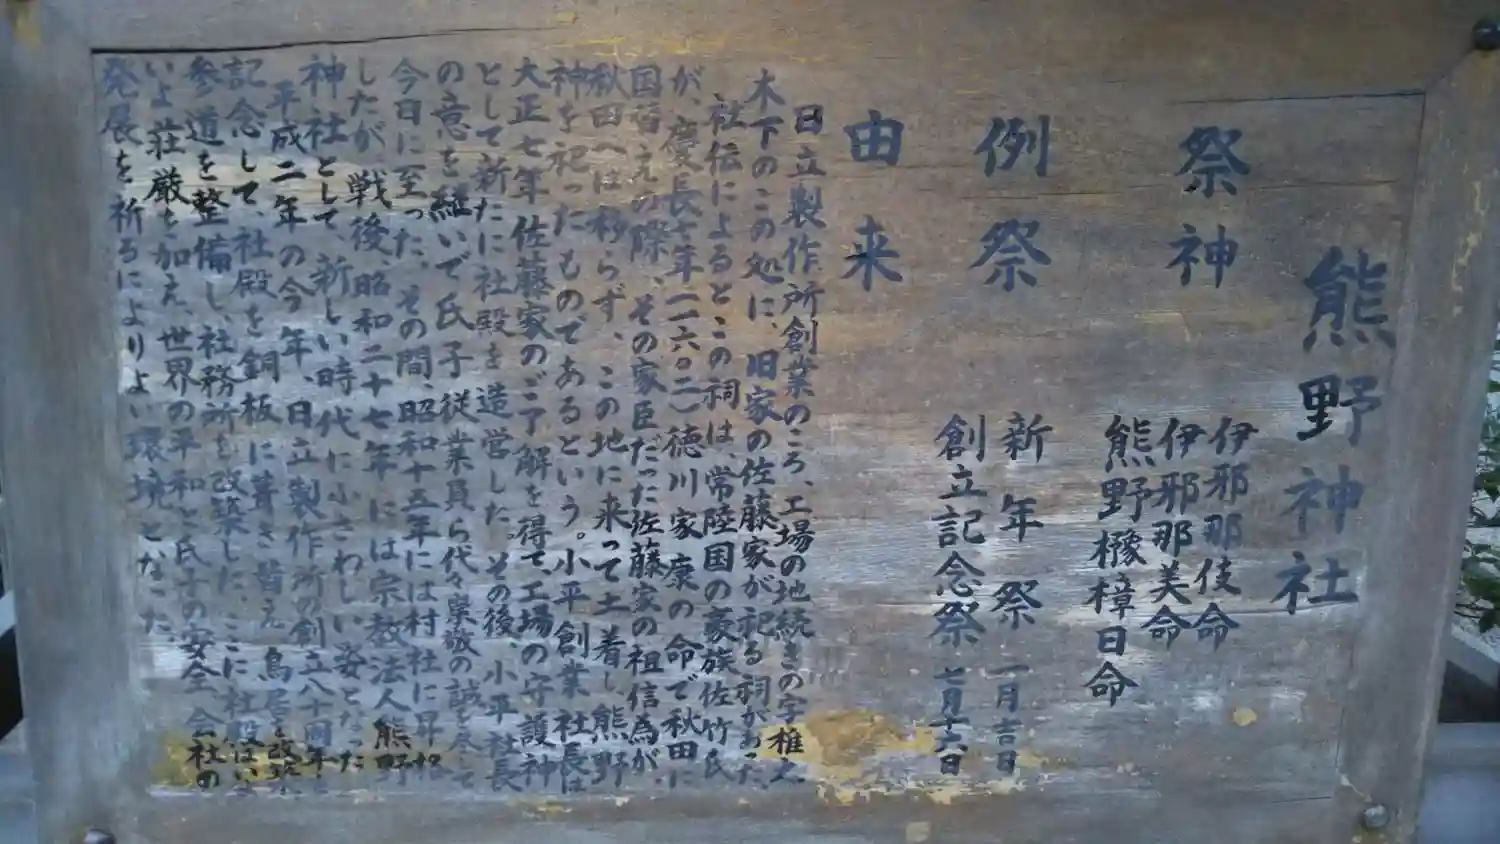 熊野神社
祭神
伊邪那伎命
伊邪那美命
熊野櫲樟日命
例祭
新年祭 一月吉日
創立記念祭 七月十六日
由来
日立製作所創業のころ、工場の地続きの字椎之
木下のこの処に、旧家の佐藤家が祀る祠があった。
社伝によるとこの祠は、常陸国の豪族佐竹氏
が、慶長七年(一六〇二)徳川家康の命で秋田に
国替えの際、その家臣だった佐藤家の祖信為が、
秋田へは移らず、この地に来って土着し、熊野
神を祀ったものであるという。小平創業社長は
大正七年佐藤家のご了解を得て、工場の守護神
として新たに社殿を造営した。その後、小平社長
の意を継いで氏子従業員ら代々崇敬の誠を尽して
今日に至った。その間、昭和十五年には村社に昇格
したが、戦後、昭和二十七年には宗教法人 熊野
神社として、新しい時代にふさわしい姿となった
平成二年の今年、日立製作所の創立八十周年を
記念して、社殿を銅板に葺き替え 鳥居を改築
参道を整備し、社務所も改築した。ここに社殿はいよ
いよ荘厳を加え、世界の平和と氏子の安全 会社の
発展を祈るによりよい環境となった。